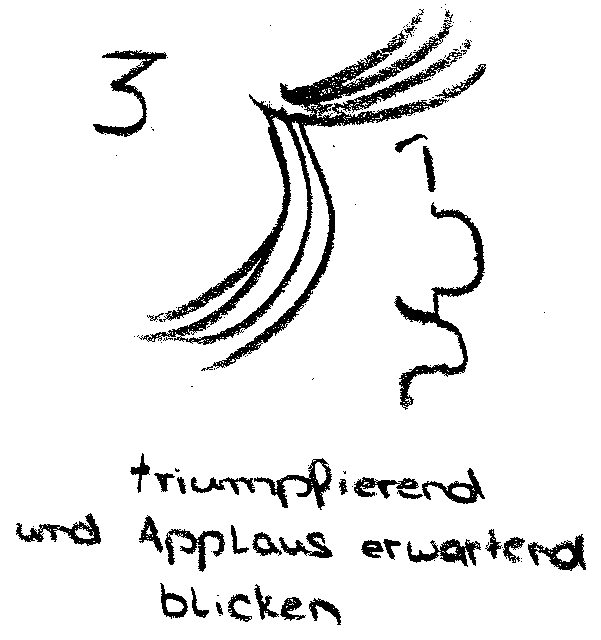 3
triumpfierend
und Applaus erwartend
blicken